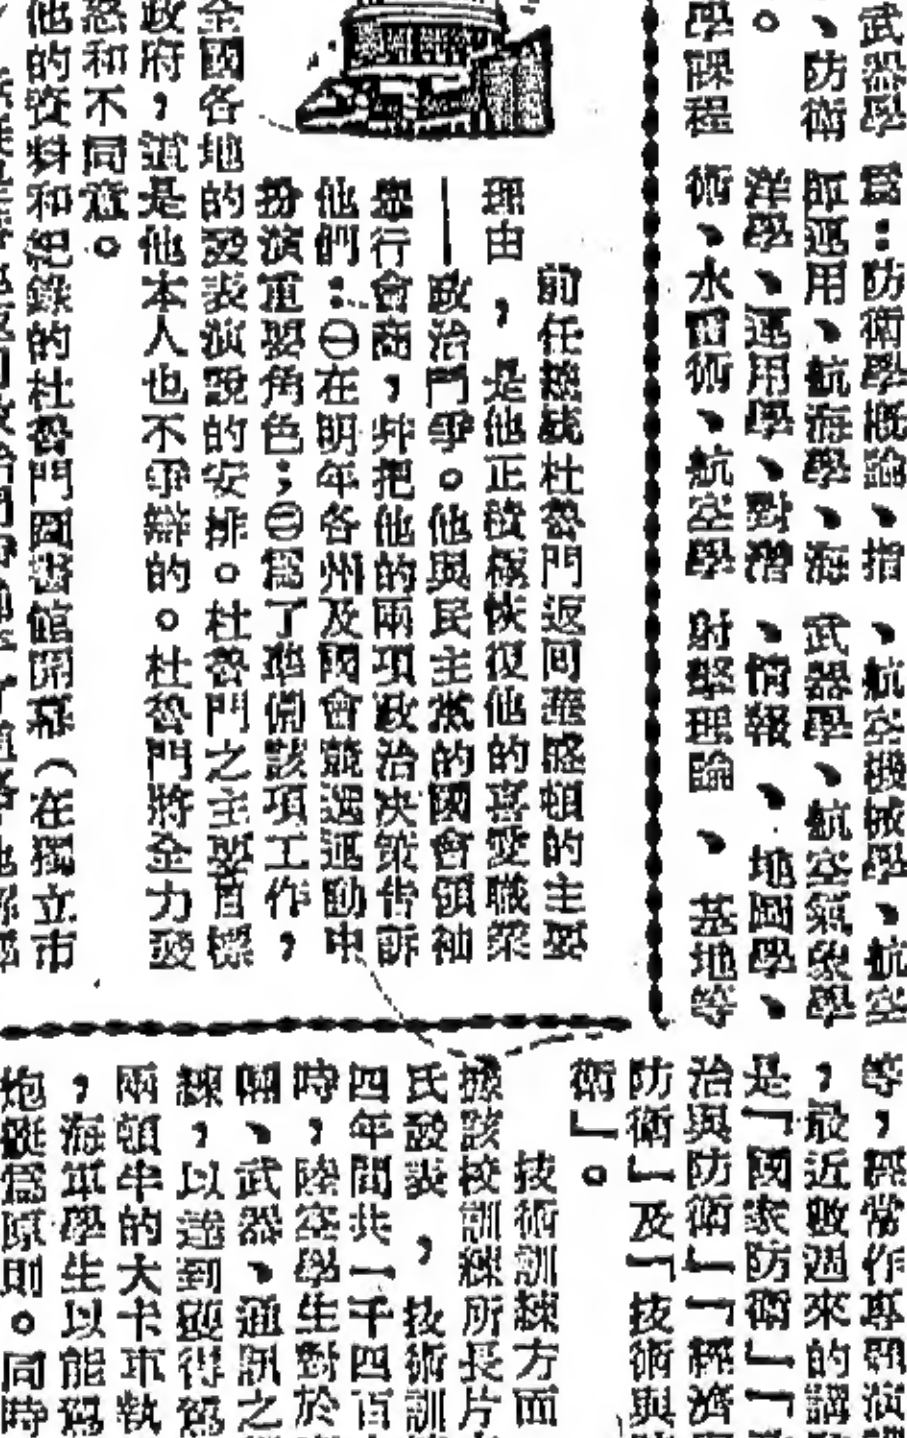 武器學
、防衛
。
學課程
為:防衛學概論、指
師運用、航海學、海
洋學、運用學、對潛
術、水雷術、航空學
、航空機械學、航空
武器學、航空氣象學
、情報、地圖學、
射擊理論、基地等
前任總統杜魯門返回華盛頓的主要
理由,是他正積極恢復他的喜愛職業
——政治鬥爭。他與民主黨的國會領袖
舉行會商,并把他的兩項政治决策告訴
他們:㊀在明年各州及國會競選運動中
扮演重要角色;㊁為了準備該項工作,
全國各地的發表演說的安排。杜魯門之主要目標
政府,這是他本人也不爭辯的。杜魯門將全力發
怒和不同意。
他的資料和紀錄的杜魯門圖書館開幕(在獨立市
等,經常作專題演
,最近數週來的講
是「國家防衛」「
治與防衛」「經濟
防衛」及「技術與
衛」。
技術訓練方面
據該校訓練所長片
氏發表,技術訓
四年間共一千四百
時,陸空學生對於
輛、武器、通訊之
練,以達到獲得駕
兩噸半的大卡車執
,海軍學生以能駕
炮艇為原則。同時